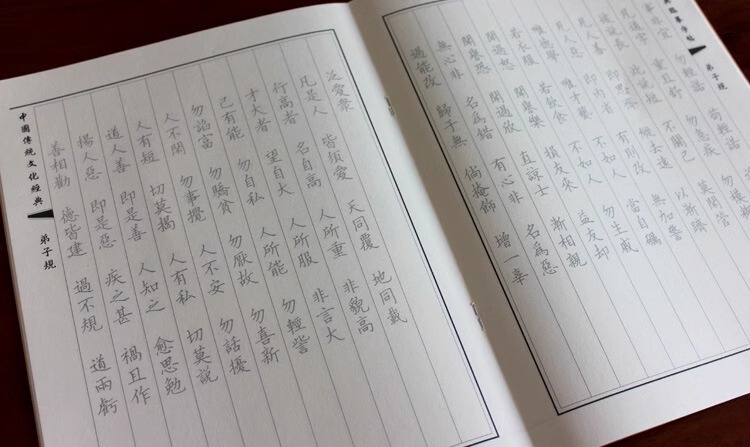 臨摹字帖 弟子規
事非宜 勿輕諾 苟輕諾
凡道字 重且舒 勿急疾 勿模
彼說長 此說短 不關己 莫閒管
見人善 即思齊 縱去遠 以漸躋
見人惡 即內省 有則改 無加警
惟德學 惟才藝 不如人 當自礪
若衣服 若飲食 不如人 勿生戚
聞過怒 聞譽樂 損友來 益友却
聞譽恐 聞過欣 直諒士 漸相親
無心非 名為錯 有心非 名為惡
過能改 歸于無 倘掩飾 增一辜
泛愛衆
凡是人 皆須愛 天同覆 地同載
行高者 名自高 人所重 非貌高
才大者 望自大 人所服 非言大
己有能 勿自私 人所能 勿輕訾
勿諂富 勿驕貧 勿厭故 勿喜新
人不閑 勿事攪 人不安 勿話擾
人有短 切莫揭 人有私 切莫說
道人善 即是善 人知之 愈思勉
揚人惡 即是惡 疾之甚 禍且作
善相勸 德皆建 過不規 道兩虧
中國傳統文化經典 弟子規